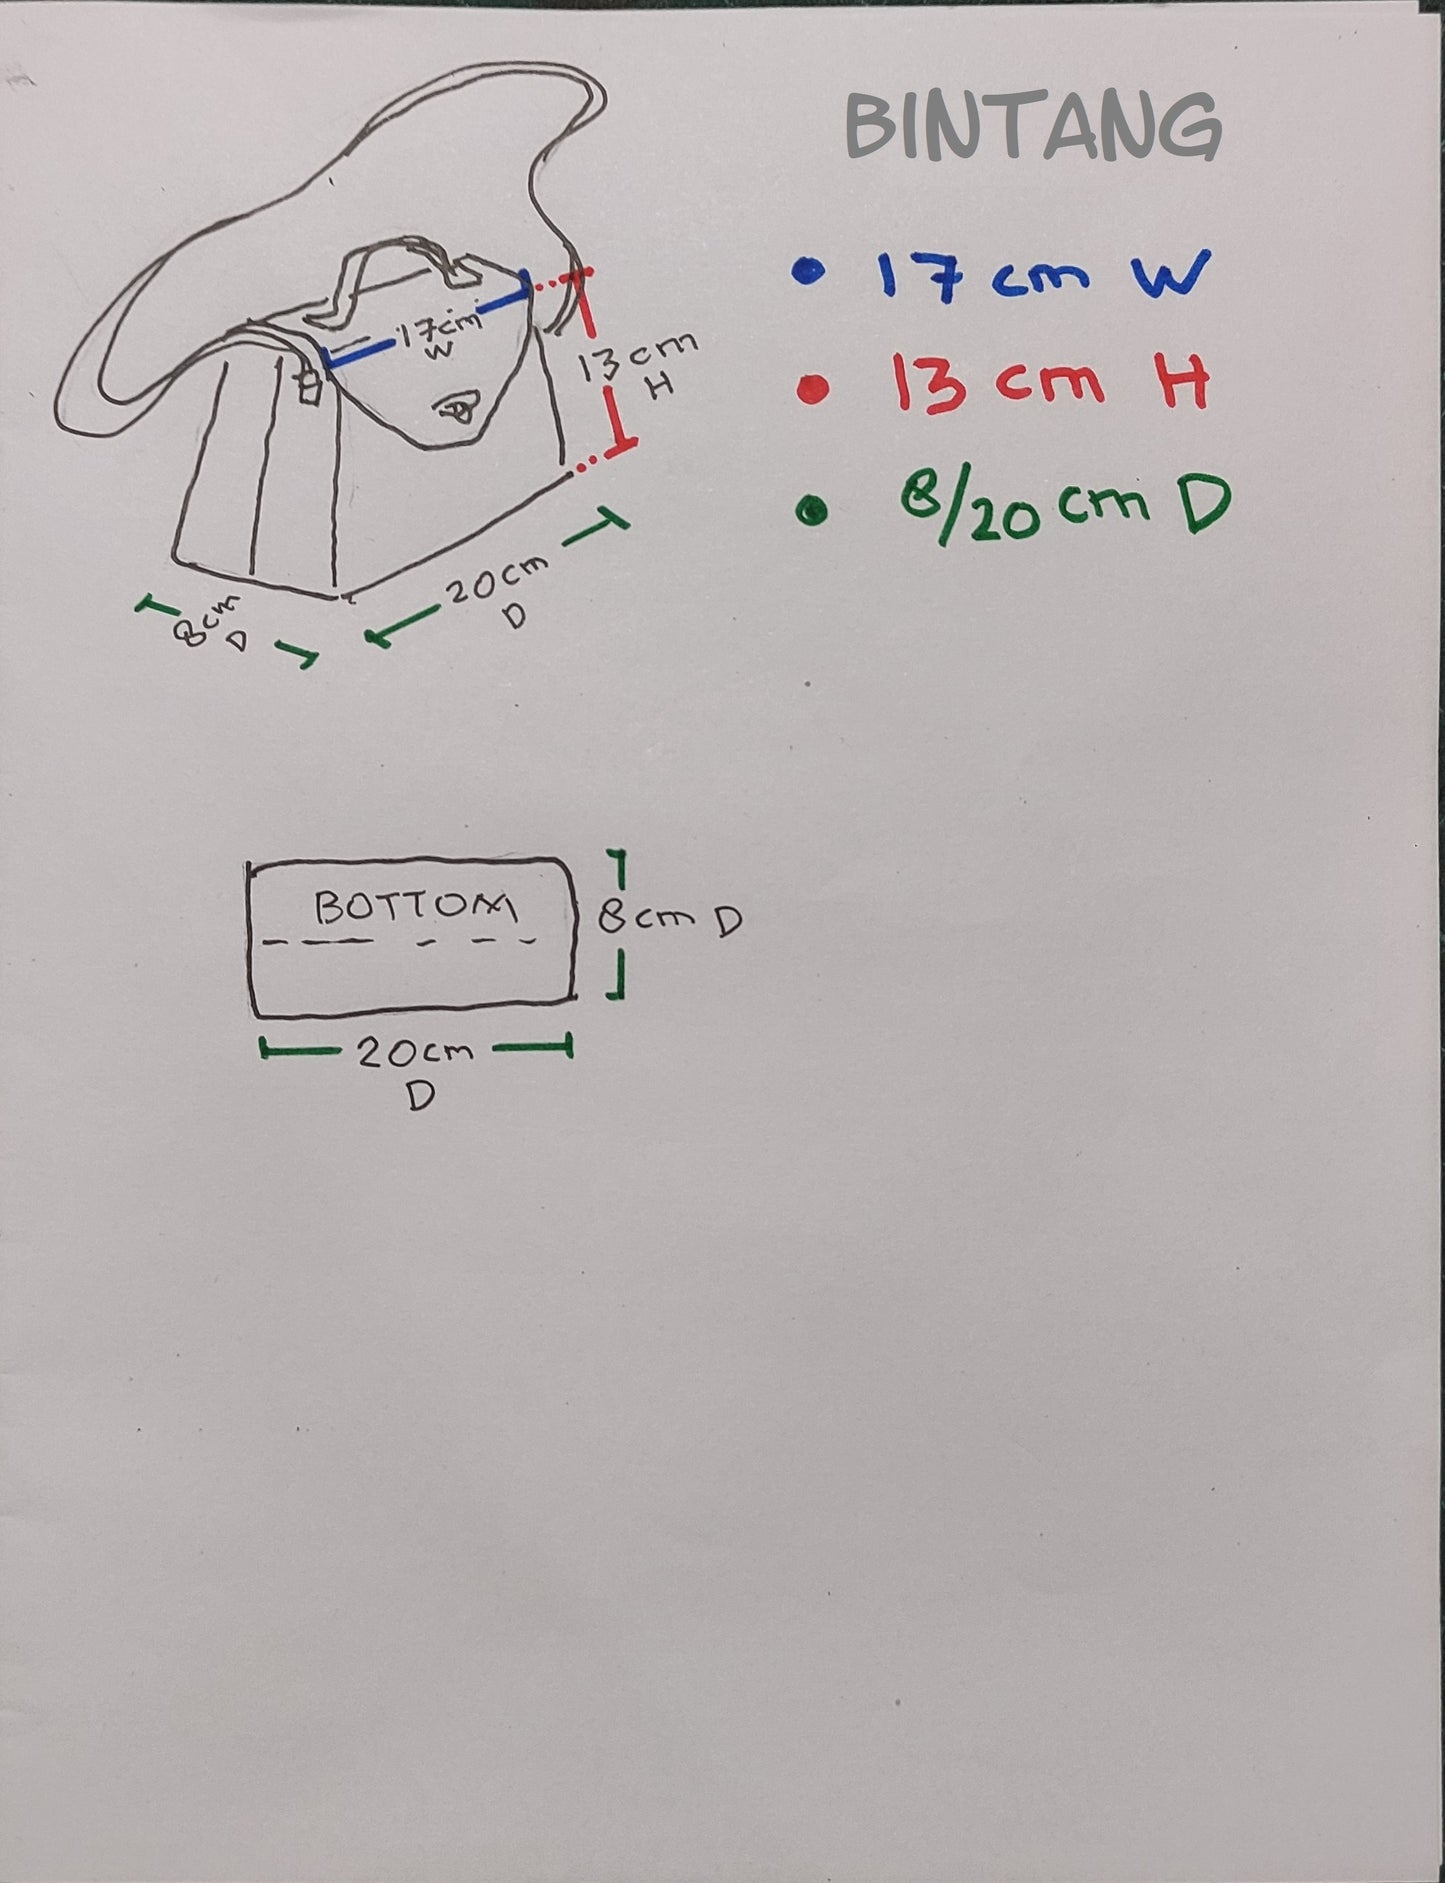 BINTANG
• 17 cm W
• 13 cm H
• 8/20 cm D
17cm
W
13 cm
H
20cm
D
8cm
D
BOTTOM
8cm D
20cm
D